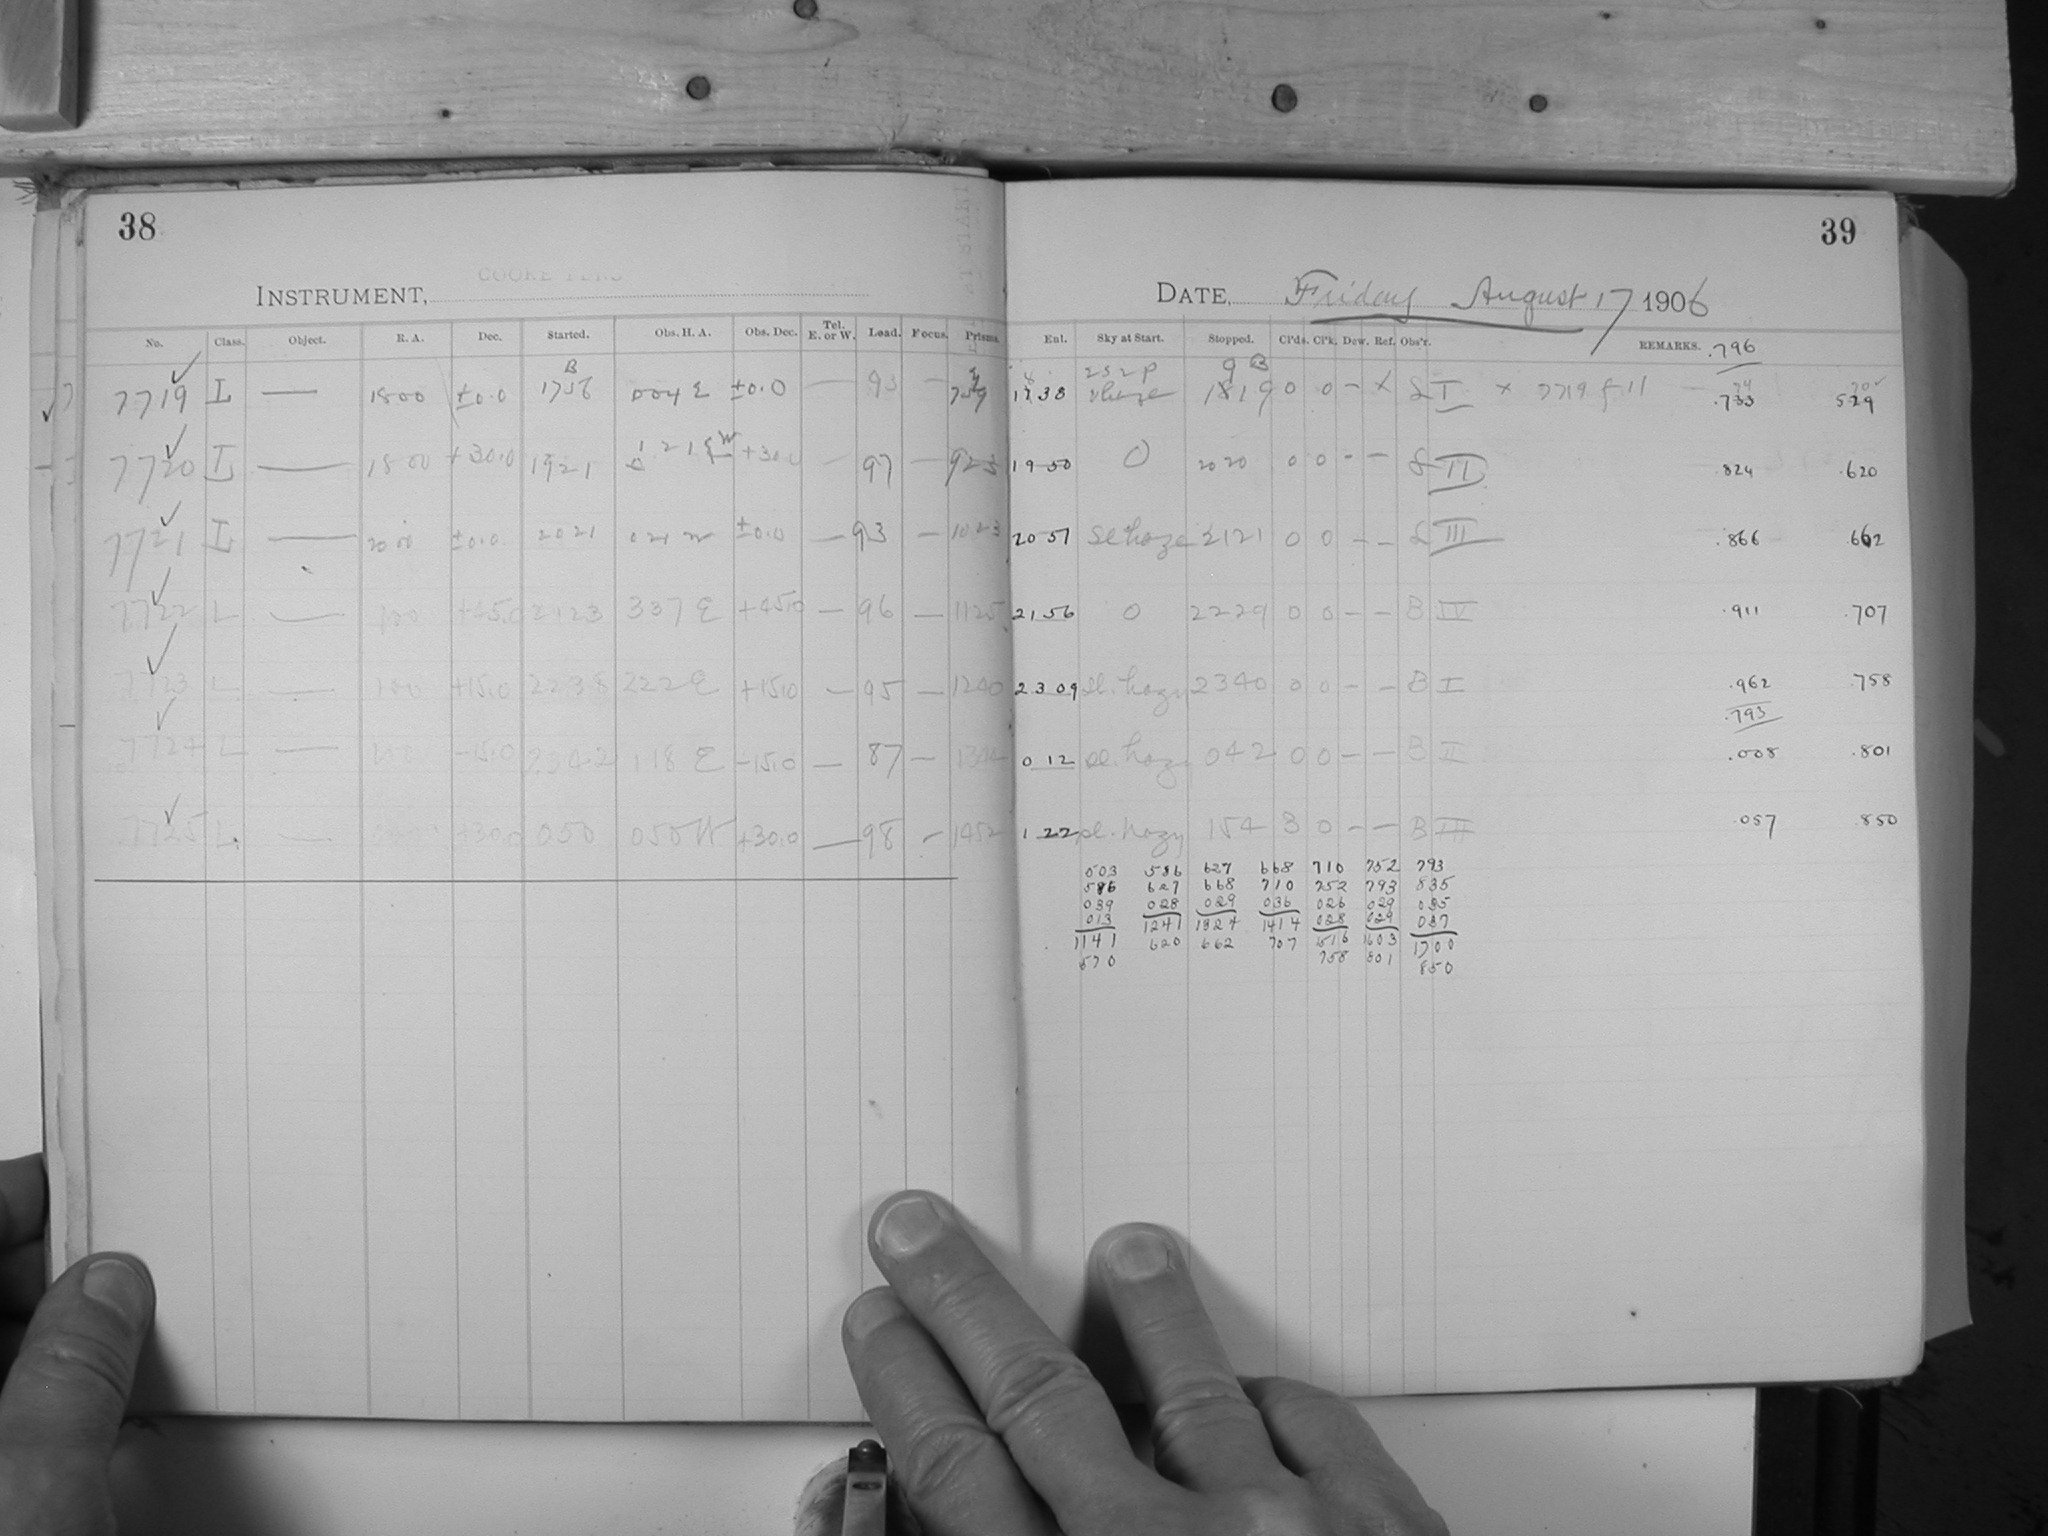 38
39
INSTRUMENT,
DATE, Friday August 17 1906
No. Class. Object. R. A. Dec. Started. Obs. H. A. Obs. Dec. Tel. E. or W. Load. Focus. Prisms. Enl. Sky at Start. Stopped. Cl'ds. Cl'k. Dew. Ref. Obs'r. REMARKS. .796
7719 L — 1800 ±0.0 1756 004 E ±0.0 — 93 — 38 1819 0 0 — X S I x 7719 .733 529
7720 L — 1800 +30.0 1921 +30.0 — 97 — 923 1950 0 2020 0 0 - - S II .824 .620
7721 L — 2000 ±0.0 2021 021 W ±0.0 — 93 — 1023 2051 Sl haze 2121 0 0 - - S III .866 662
7722 L — 100 +45.0 2123 337 E +45.0 — 96 — 1125 2156 0 2229 0 0 - - B IV .911 .707
7723 L — 100 +15.0 2238 222 E +15.0 — 95 — 1240 2309 sl. hazy 2340 0 0 - - B I .962 .758
.793
7724 L — -15.0 2342 118 E -15.0 — 87 — 0 12 sl. hazy 042 0 0 - - B II .008 .801
7725 L. — +30.0 050 050 W +30.0 — 98 - 1452 1 22 sl. hazy 154 3 0 - - B III .057 .850
503 586 627 668 710 752 793
586 627 668 710 752 793 835
039 028 029 036 026 029 035
013 1241 1324 1414 028 029 037
1141 620 662 707 1516 1603 1700
570 758 801 850